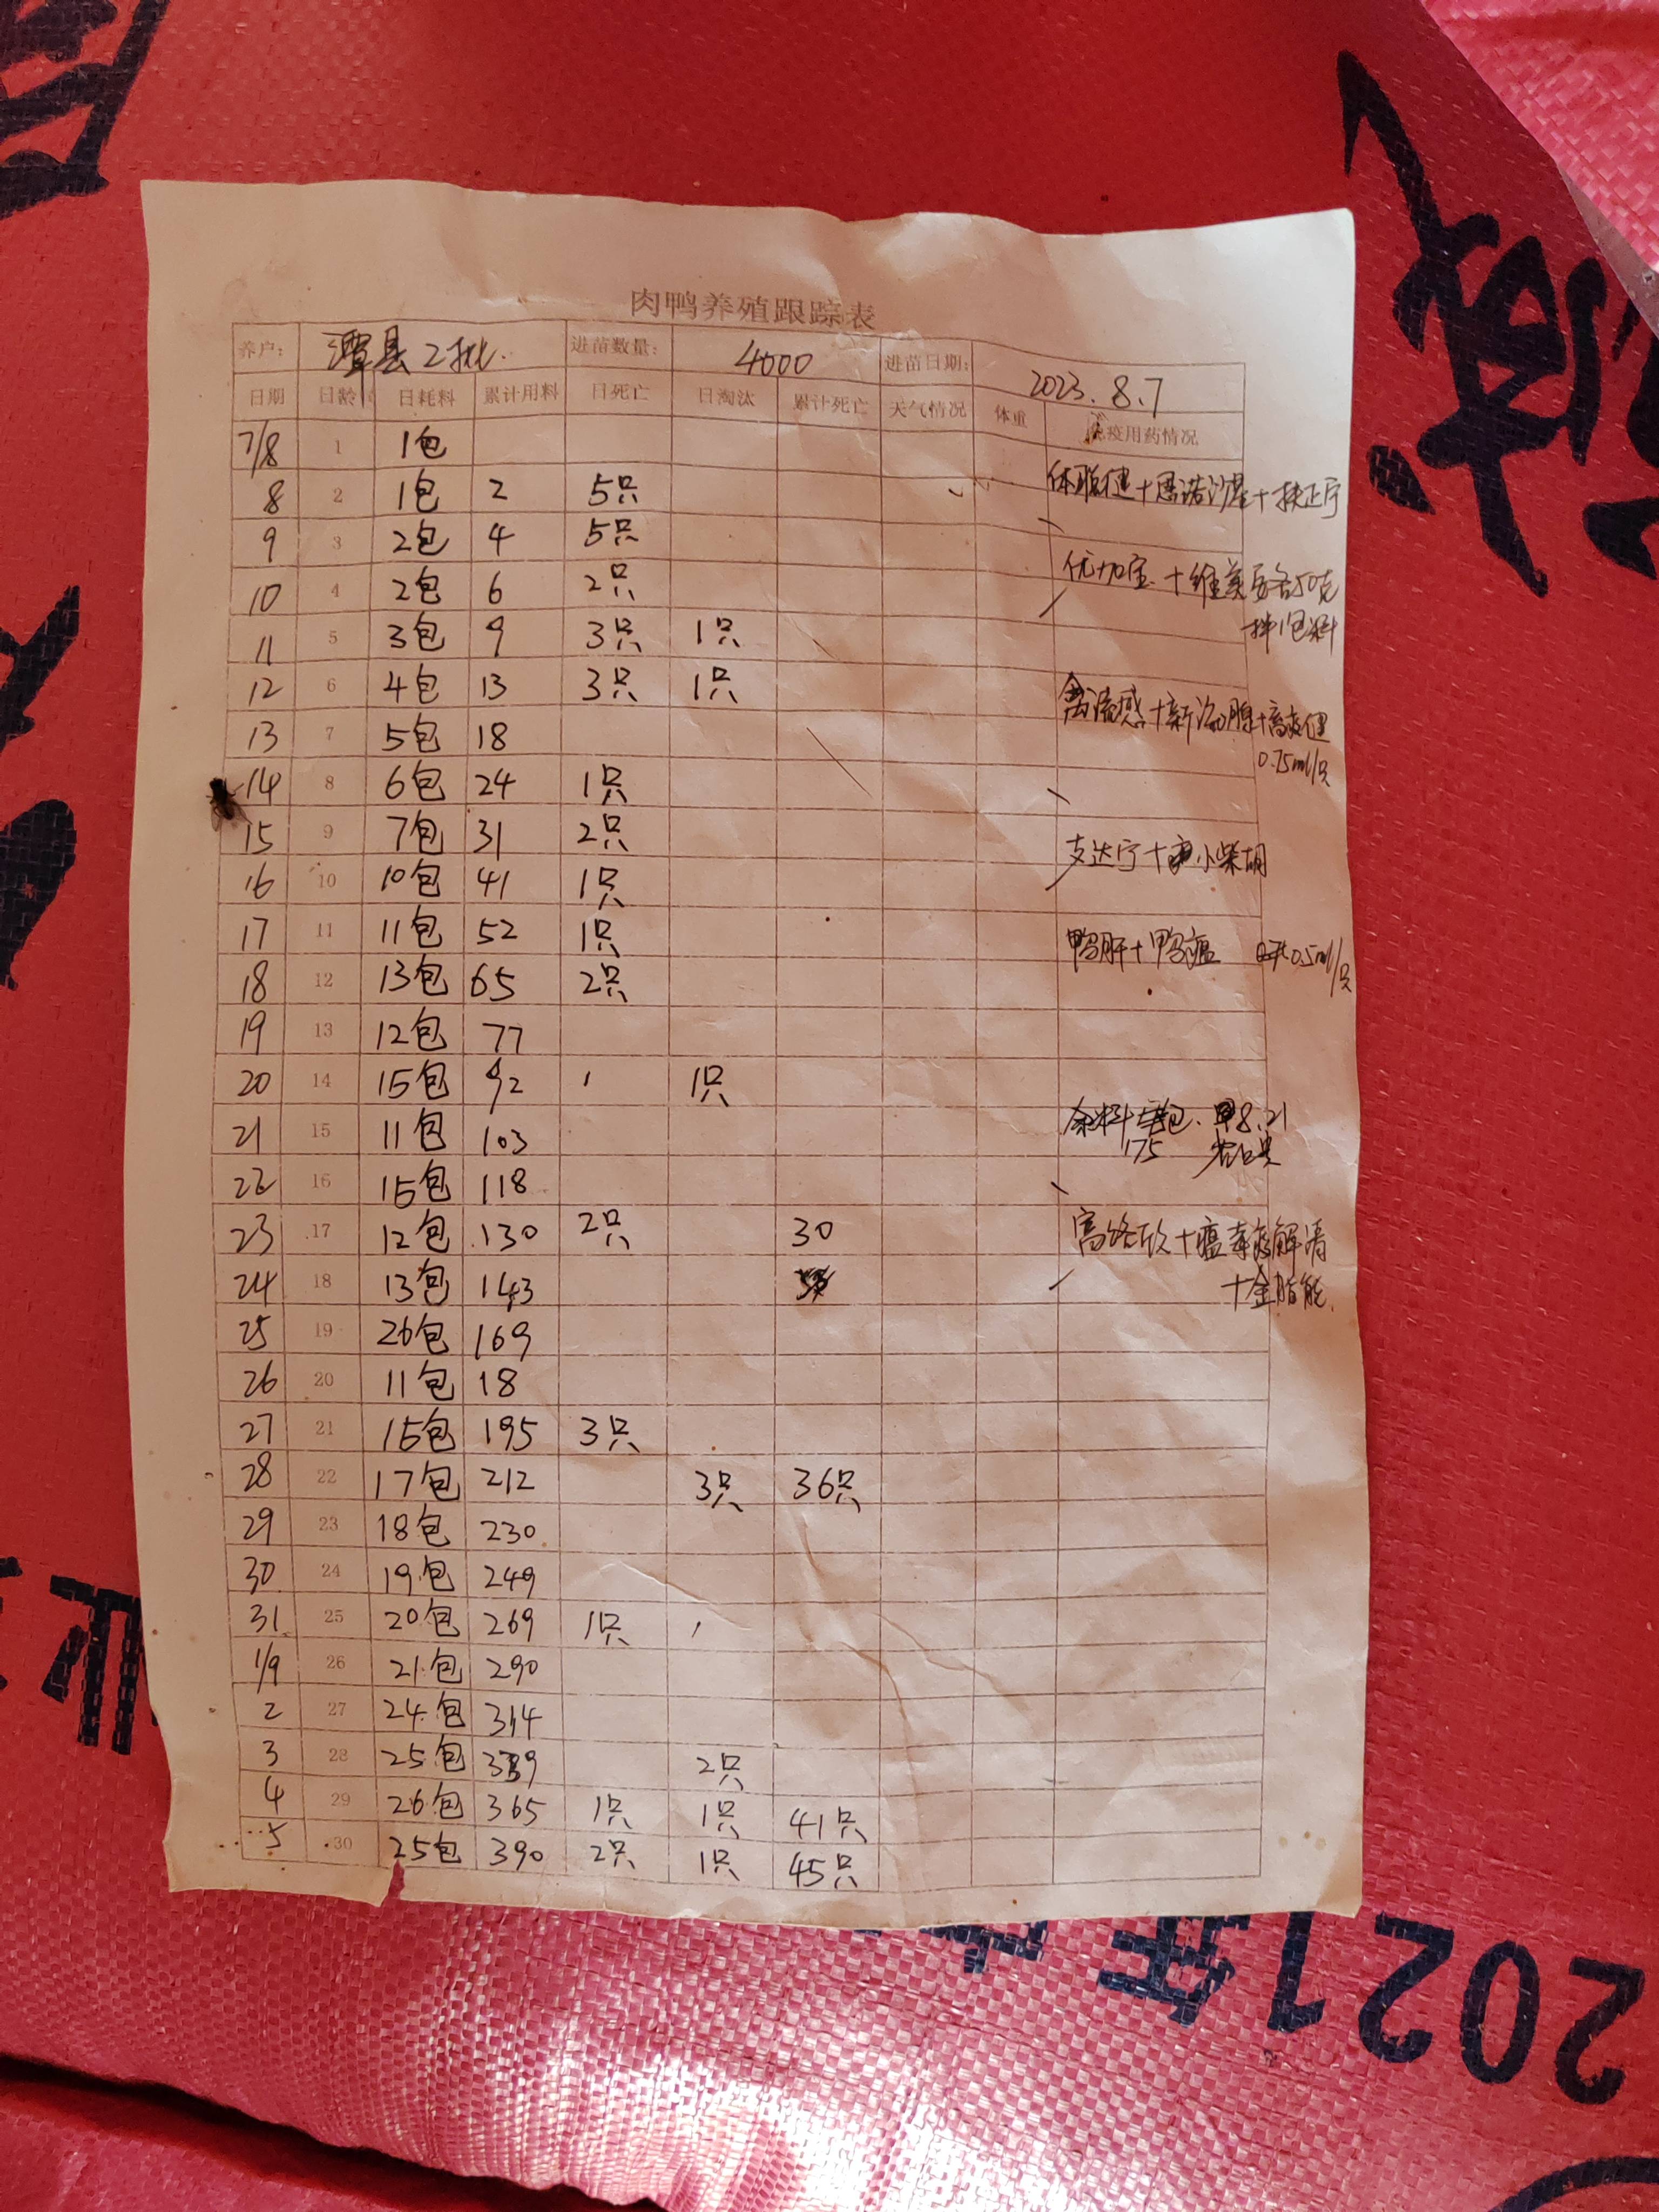 肉鸭养殖跟踪表
养户: 潭县2批. 进苗数量: 4000 进苗日期: 2023.8.7
日期 日龄 日耗料 累计用料 日死亡 日淘汰 累计死亡 天气情况 体重 免疫用药情况
7/8 1 1包
8 2 1包 2 5只 体聪健+恩诺沙星+扶正宁
9 3 2包 4 5只
10 4 2包 6 2只 优加宝.+维美 各50克
11 5 3包 9 3只 1只 拌1包料
12 6 4包 13 3只 1只 禽流感+新流腺+高
13 7 5包 18 0.75ml/只
14 8 6包 24 1只
15 9 7包 31 2只 支达宁+小柴胡
16 10 10包 41 1只
17 11 11包 52 1只 鸭肝+鸭瘟 0.5ml/只
18 12 13包 65 2只
19 13 12包 77
20 14 15包 92 1只
21 15 11包 103 余料 包. 8.21
175
22 16 15包 118
23 17 12包 130 2只 30 +瘟毒 解清
24 18 13包 143 +金脂能.
25 19 26包 169
26 20 11包 18
27 21 15包 195 3只
28 22 17包 212 3只 36只
29 23 18包 230
30 24 19包 249
31 25 20包 269 1只
1/9 26 21包 290
2 27 24包 314
3 28 25包 339 2只
4 29 26包 365 1只 1只 41只
5 30 25包 390 2只 1只 45只
2021年